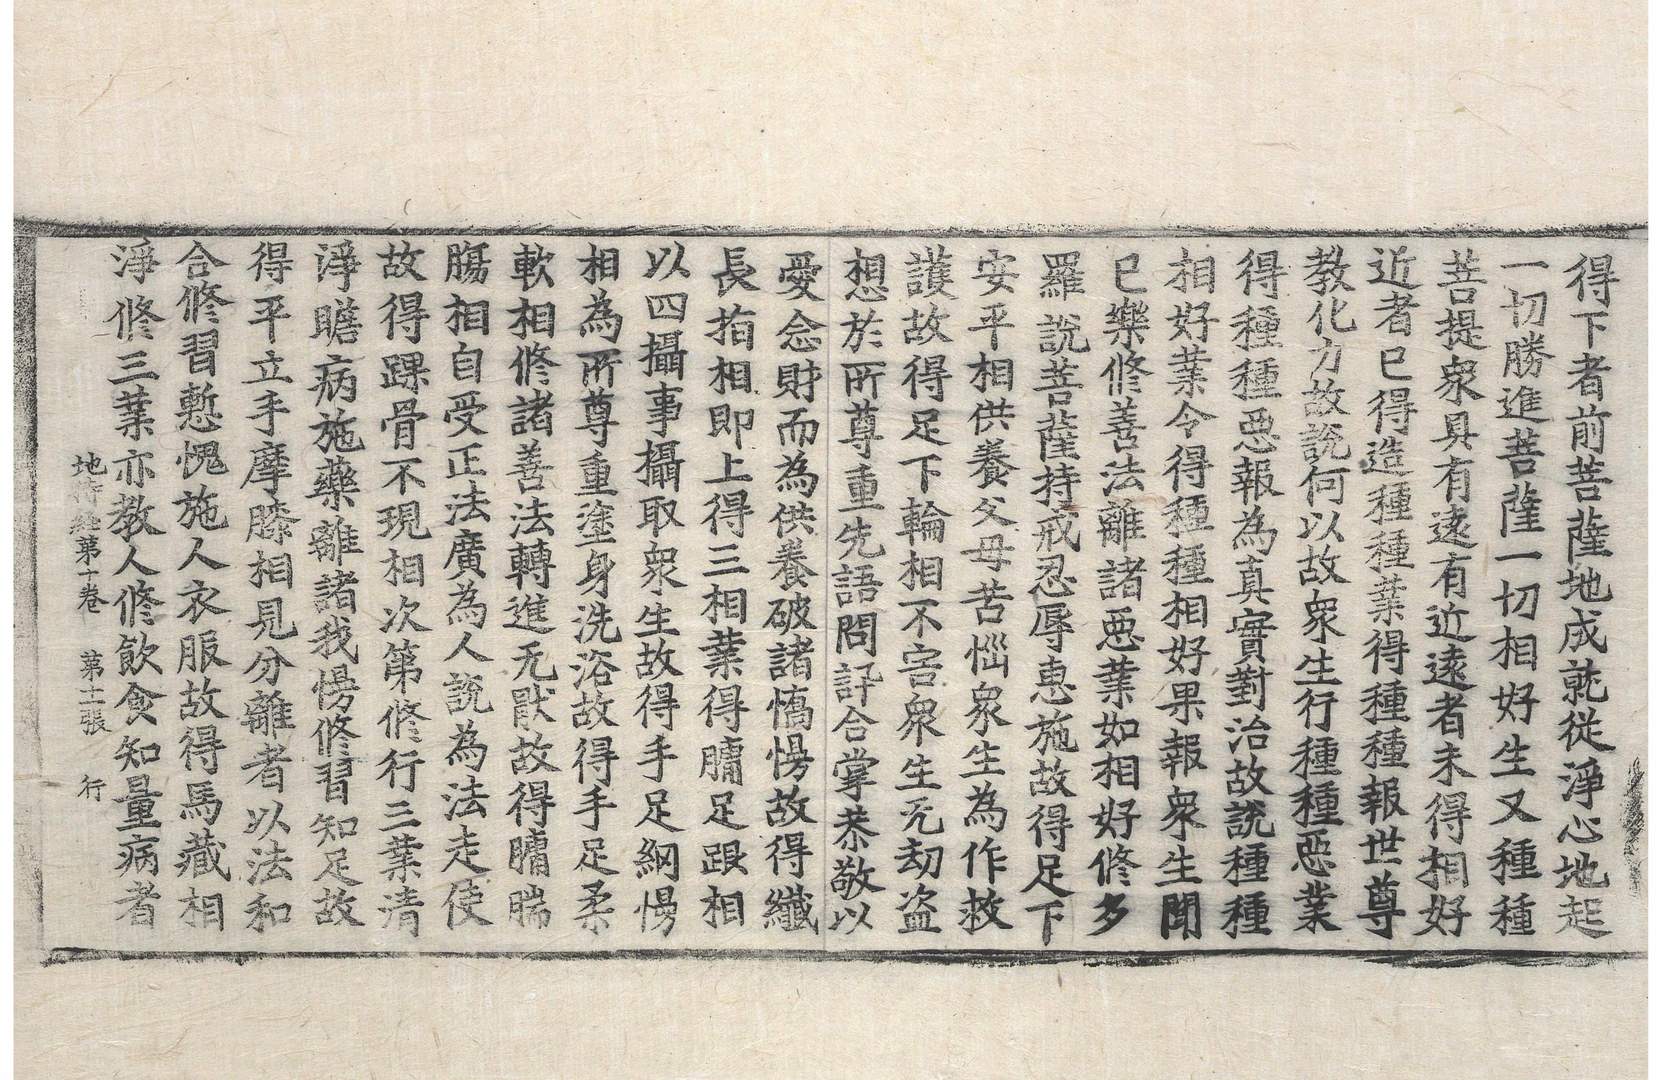 得下者前菩薩地成就從淨心地起
一切勝進菩薩一切相好生又種種
菩提衆具有遠有近遠者未得相好
近者已得造種種業得種種報世尊
教化力故説何以故衆生行種種惡業
得種種惡報為真實對治故説種種
相好業令得種種相好果報衆生聞
已樂修善法離諸惡業如相好修多
羅説菩薩持戒忍辱惠施故得足下
安平相供養父母苦惱衆生為作救
護故得足下輪相不害衆生无劫盜
想於所尊重先語問訊合掌恭敬以
愛念財而為供養破諸憍慢故得纖
長指相即上得三相業得𦟛足跟相
以四攝事攝取衆生故得手足網慢
相為所尊重塗身洗浴故得手足柔
軟相修諸善法轉進无猒故得𦟛腨
膓相自受正法廣為人説為法走使
故得踝骨不現相次第修行三業清
淨瞻病施藥離諸我慢修習知足故
得平立手摩膝相見分離者以法和
合修習慙愧施人衣服故得馬藏相
淨修三業亦教人修飲食知量病者
地持經第十卷　第十二張　行